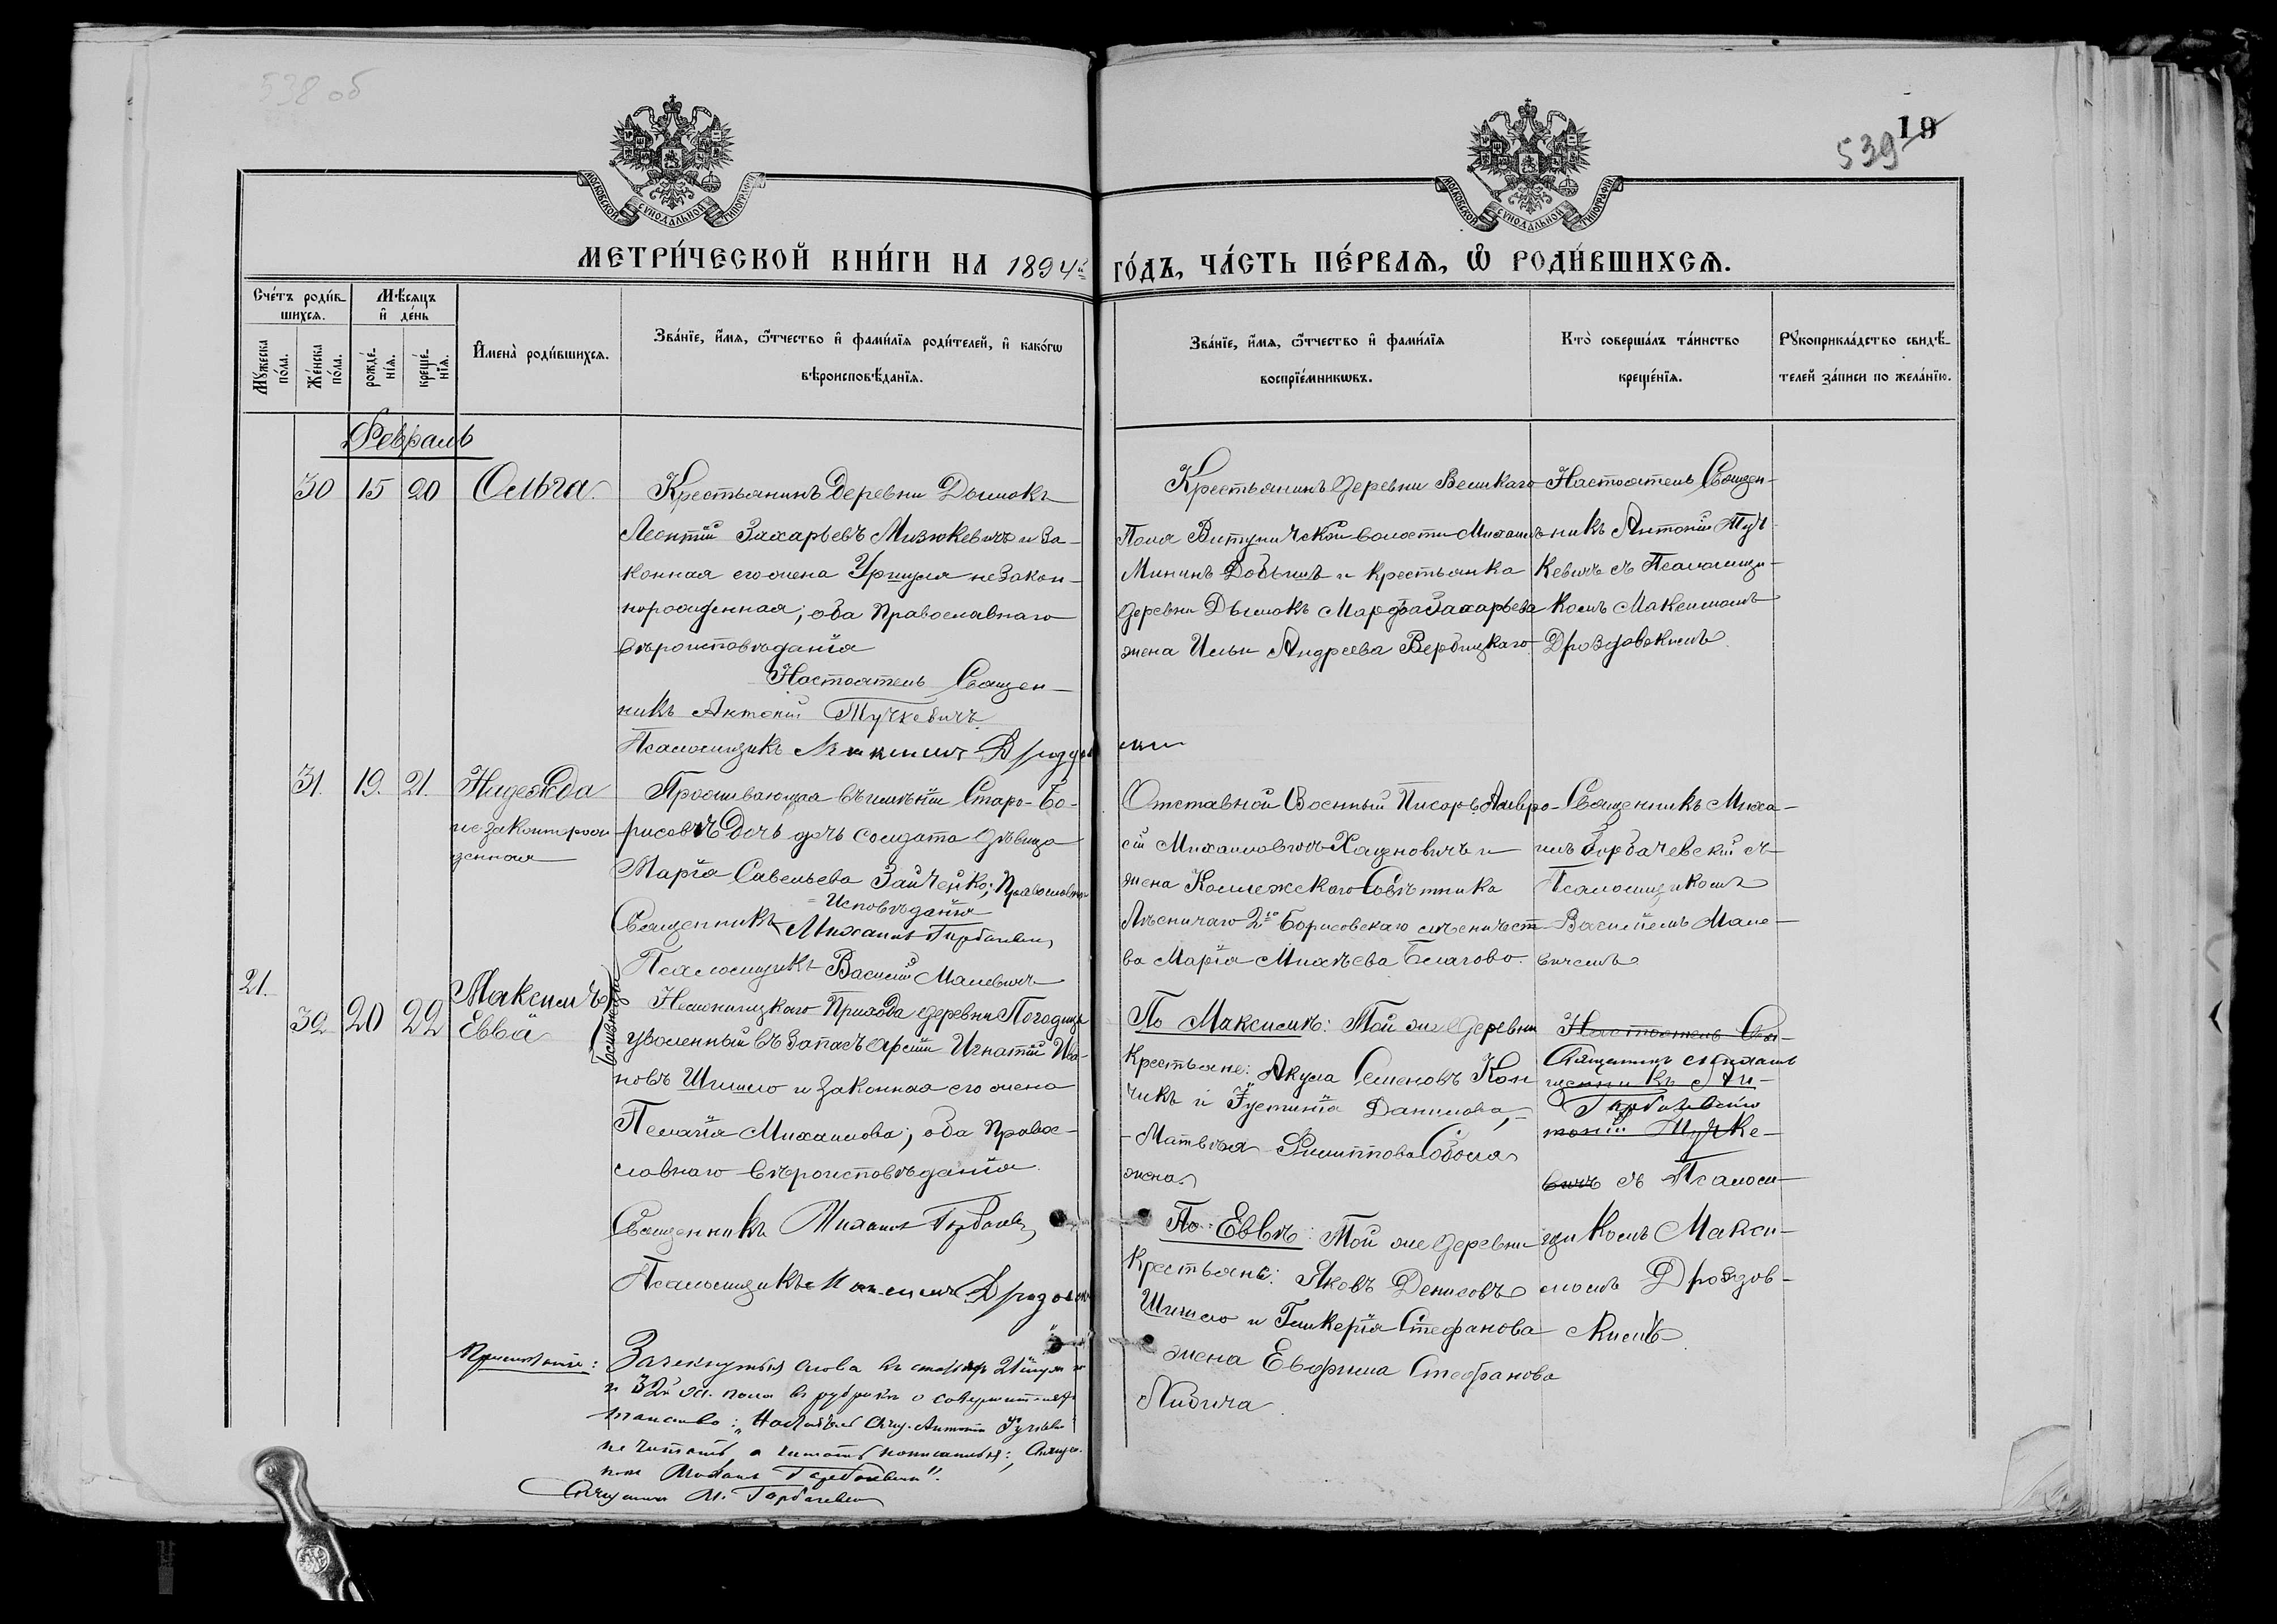 538 об
19
539
МОСКОВСКОЙ СѴНОДАЛЬНОЙ ТИПОГРАФІИ
МОСКОВСКОЙ СѴНОДАЛЬНОЙ ТИПОГРАФІИ
МЕТРИ́ЧЕСКОЙ КНИ́ГИ НА 1894й ГО́ДЪ, ЧА́СТЬ ПЕ́РВАѦ, Ѡ҆ РОДИ́ВШИХСѦ.
Сче́тъ роди́вшихсѧ.
Мꙋ́жеска по́ла.
Же́нска по́ла.
Мѣ́сѧцъ и҆ де́нь
рожде́нїѧ.
креще́нїѧ.
И҆мена̀ роди́вшихсѧ.
Зва́нїе, и҆́мѧ, ѻ҆́тчество и҆ фами́лїѧ роди́телей, и҆ како́гѡ
вѣроисповѣ́данїѧ.
Зва́нїе, и҆́мѧ, ѻ҆́тчество и҆ фами́лїѧ
воспрїе́мникѡвъ.
Кто̀ соверша́лъ та́инство
креще́нїѧ.
Рꙋкоприкла́дство свидѣ́-
телей за́писи по жела́нїю.
Февраль
30 15 20 Ольга.
Крестьянинъ деревни Дымокъ
Леонтій Захарьевъ Мизюкевичъ и за-
конная его жена Уршуля незакон-
норожденная; оба Православнаго
вѣроисповѣданія
Настоятель Священ-
никъ Антоній Тучкевичъ
Псаломщикъ Максимъ Дроздовскій
Крестьянинъ деревни Великаго
Поля Витуничской волости Михаилъ
Мининъ и крестьянка
деревни Дымокъ Марфа Захарьева
жена Ильи Андреева Вербицкаго
Настоятель Священ-
никъ Антоній Туч-
кевичъ съ Псаломщи-
комъ Максимомъ
Дроздовскимъ.
31. 19. 21. Надежда
незаконнорож-
денная
Проживающая въ имѣніи Старо-Бо-
рисовѣ дочь солдата дѣвица
Марія Савельева Зайченко; Православнаго
Исповѣданія
Священникъ Михаилъ Горбачевскій
Псаломщикъ Василій Малевичъ
Отставной Военный Писарь Амвро-
сій Михаиловичъ Хацновичъ и
жена Коллежскаго Совѣтника
Лѣсничаго 2го Борисовскаго лѣсничест-
ва Марія Михѣева Благово.
Священникъ Миха-
илъ Горбачевскій съ
Псаломщикомъ
Василіемъ Мале-
вичемъ
21.
32 20 22
Максимъ
Евва
близнецы
Немоницкаго Прихода деревни Погодица
уволенный въ запасъ арміи Игнатій Ива-
новъ Шишло и законная его жена
Пелагія Михаилова; оба Право-
славнаго вѣроисповѣданія.
Священникъ Михаилъ Горбачевскій
Псаломщикъ Максимъ Дроздовскій
По Максимѣ: Той же деревни
Крестьяне: Акула Семеновъ Кон
чикъ и Іустинія Данилова,
Матвѣя Филиппова Соболя
жена.
По Еввѣ: Той же деревни
Крестьяне: Яковъ Денисовъ
Шишло и Гликерія Стефанова
жена Евфима Стефанова
Настоятель Свя-
Священникъ Михаилъ
щенникъ Ан-
Горбачевскій
тоній Тучке-
вичъ съ Псаломщ-
комъ Макси-
момъ Дроздов-
скимъ
Примѣчаніе:
Зачеркнутыя слова въ статьѣ 21й муж.
и 32й ж. пола въ рубрикѣ о совершит.
таинство: "Настоятель Свящ. Антоній Тучкевичъ
не читать, а читать написанныя: "Священ-
никъ Михаилъ Горбачевскій".
Священникъ М. Горбачевскій